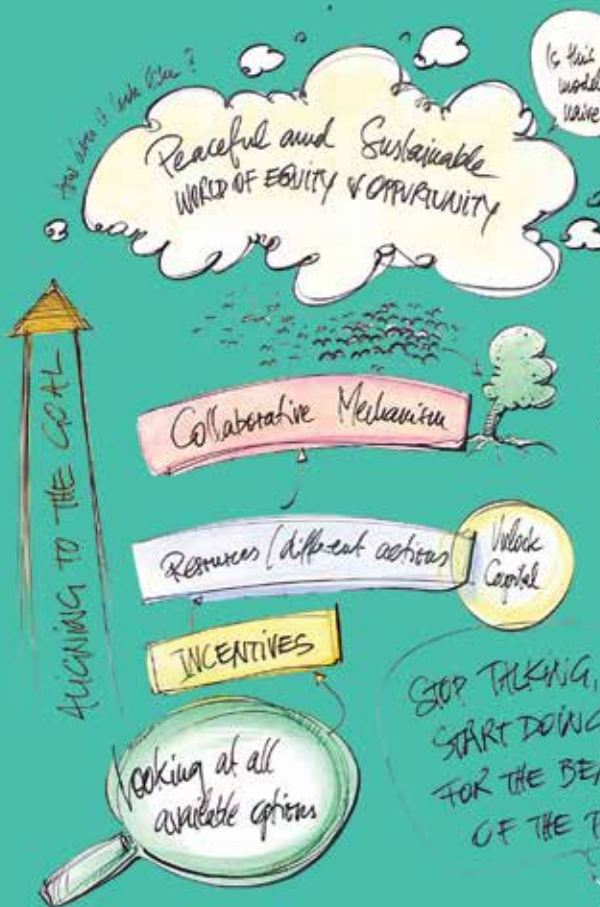 How does it look like?
Is this
model
naive
Peaceful and Sustainable
WORLD OF EQUITY & OPPURTUNITY
ALIGNING TO THE GOAL
Collaborative Mechanism
Resources / different actions
Unlock
Capital
INCENTIVES
Looking at all
available options
STOP TALKING,
START DOING
FOR THE
OF THE